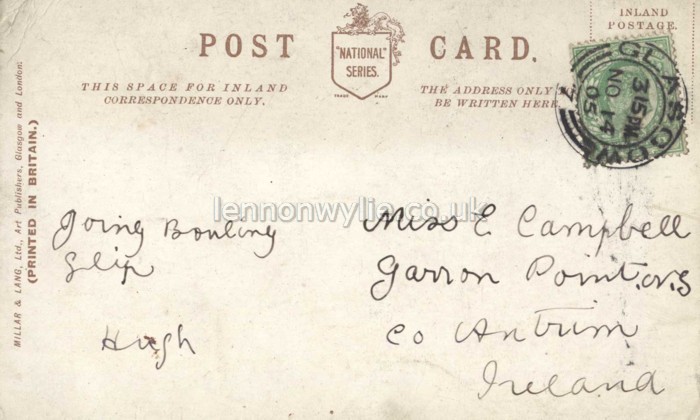 INLAND
POSTAGE.
POST CARD.
"NATIONAL"
SERIES.
TRADE MARK
THIS SPACE FOR INLAND
CORRESPONDENCE ONLY.
THE ADDRESS ONLY TO
BE WRITTEN HERE
GLASGOW
3 15 PM
NO 14
05
MILLAR & LANG, Ltd., Art Publishers, Glasgow and London.
(PRINTED IN BRITAIN.)
lennonwylie.co.uk
Going Bowling
Slip
Hugh
Miss E Campbell
Garron Point
Co Antrim
Ireland